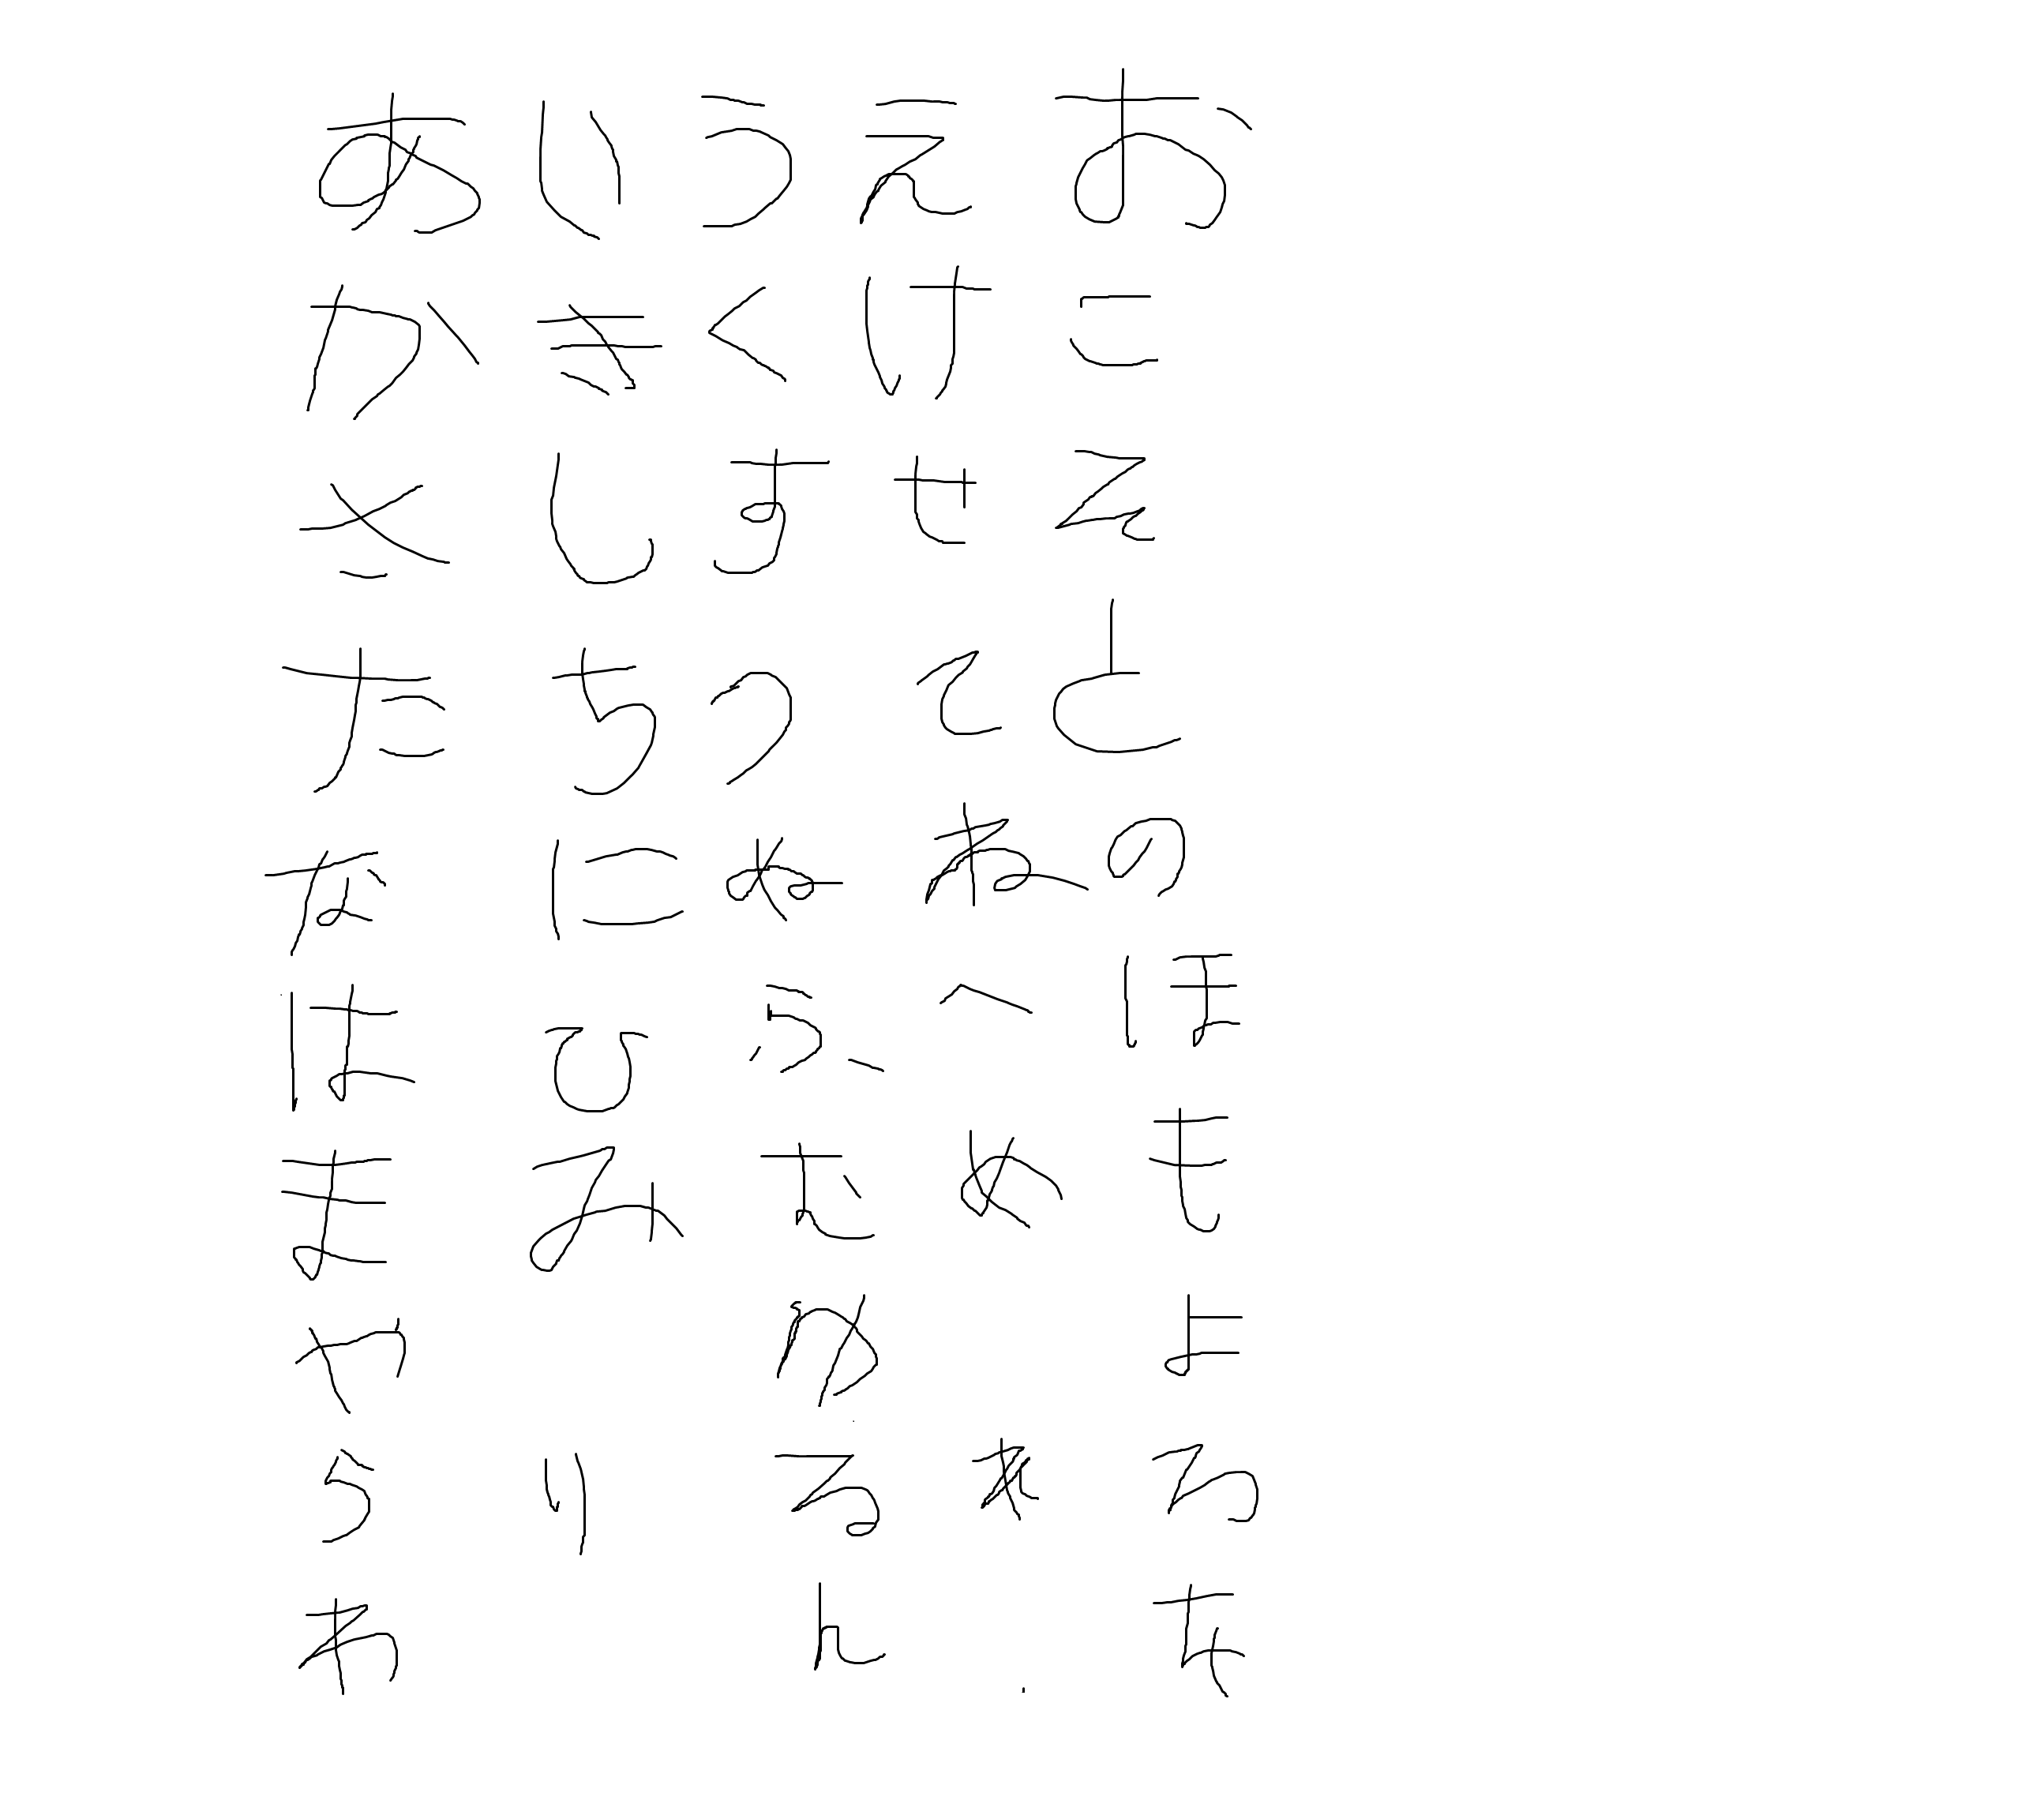 あいうえお
かきくけこ
さしすせそ
たちつてと
なにぬねの
はひふへほ
まみむめも
やゆよ
らりるれろ
わんを